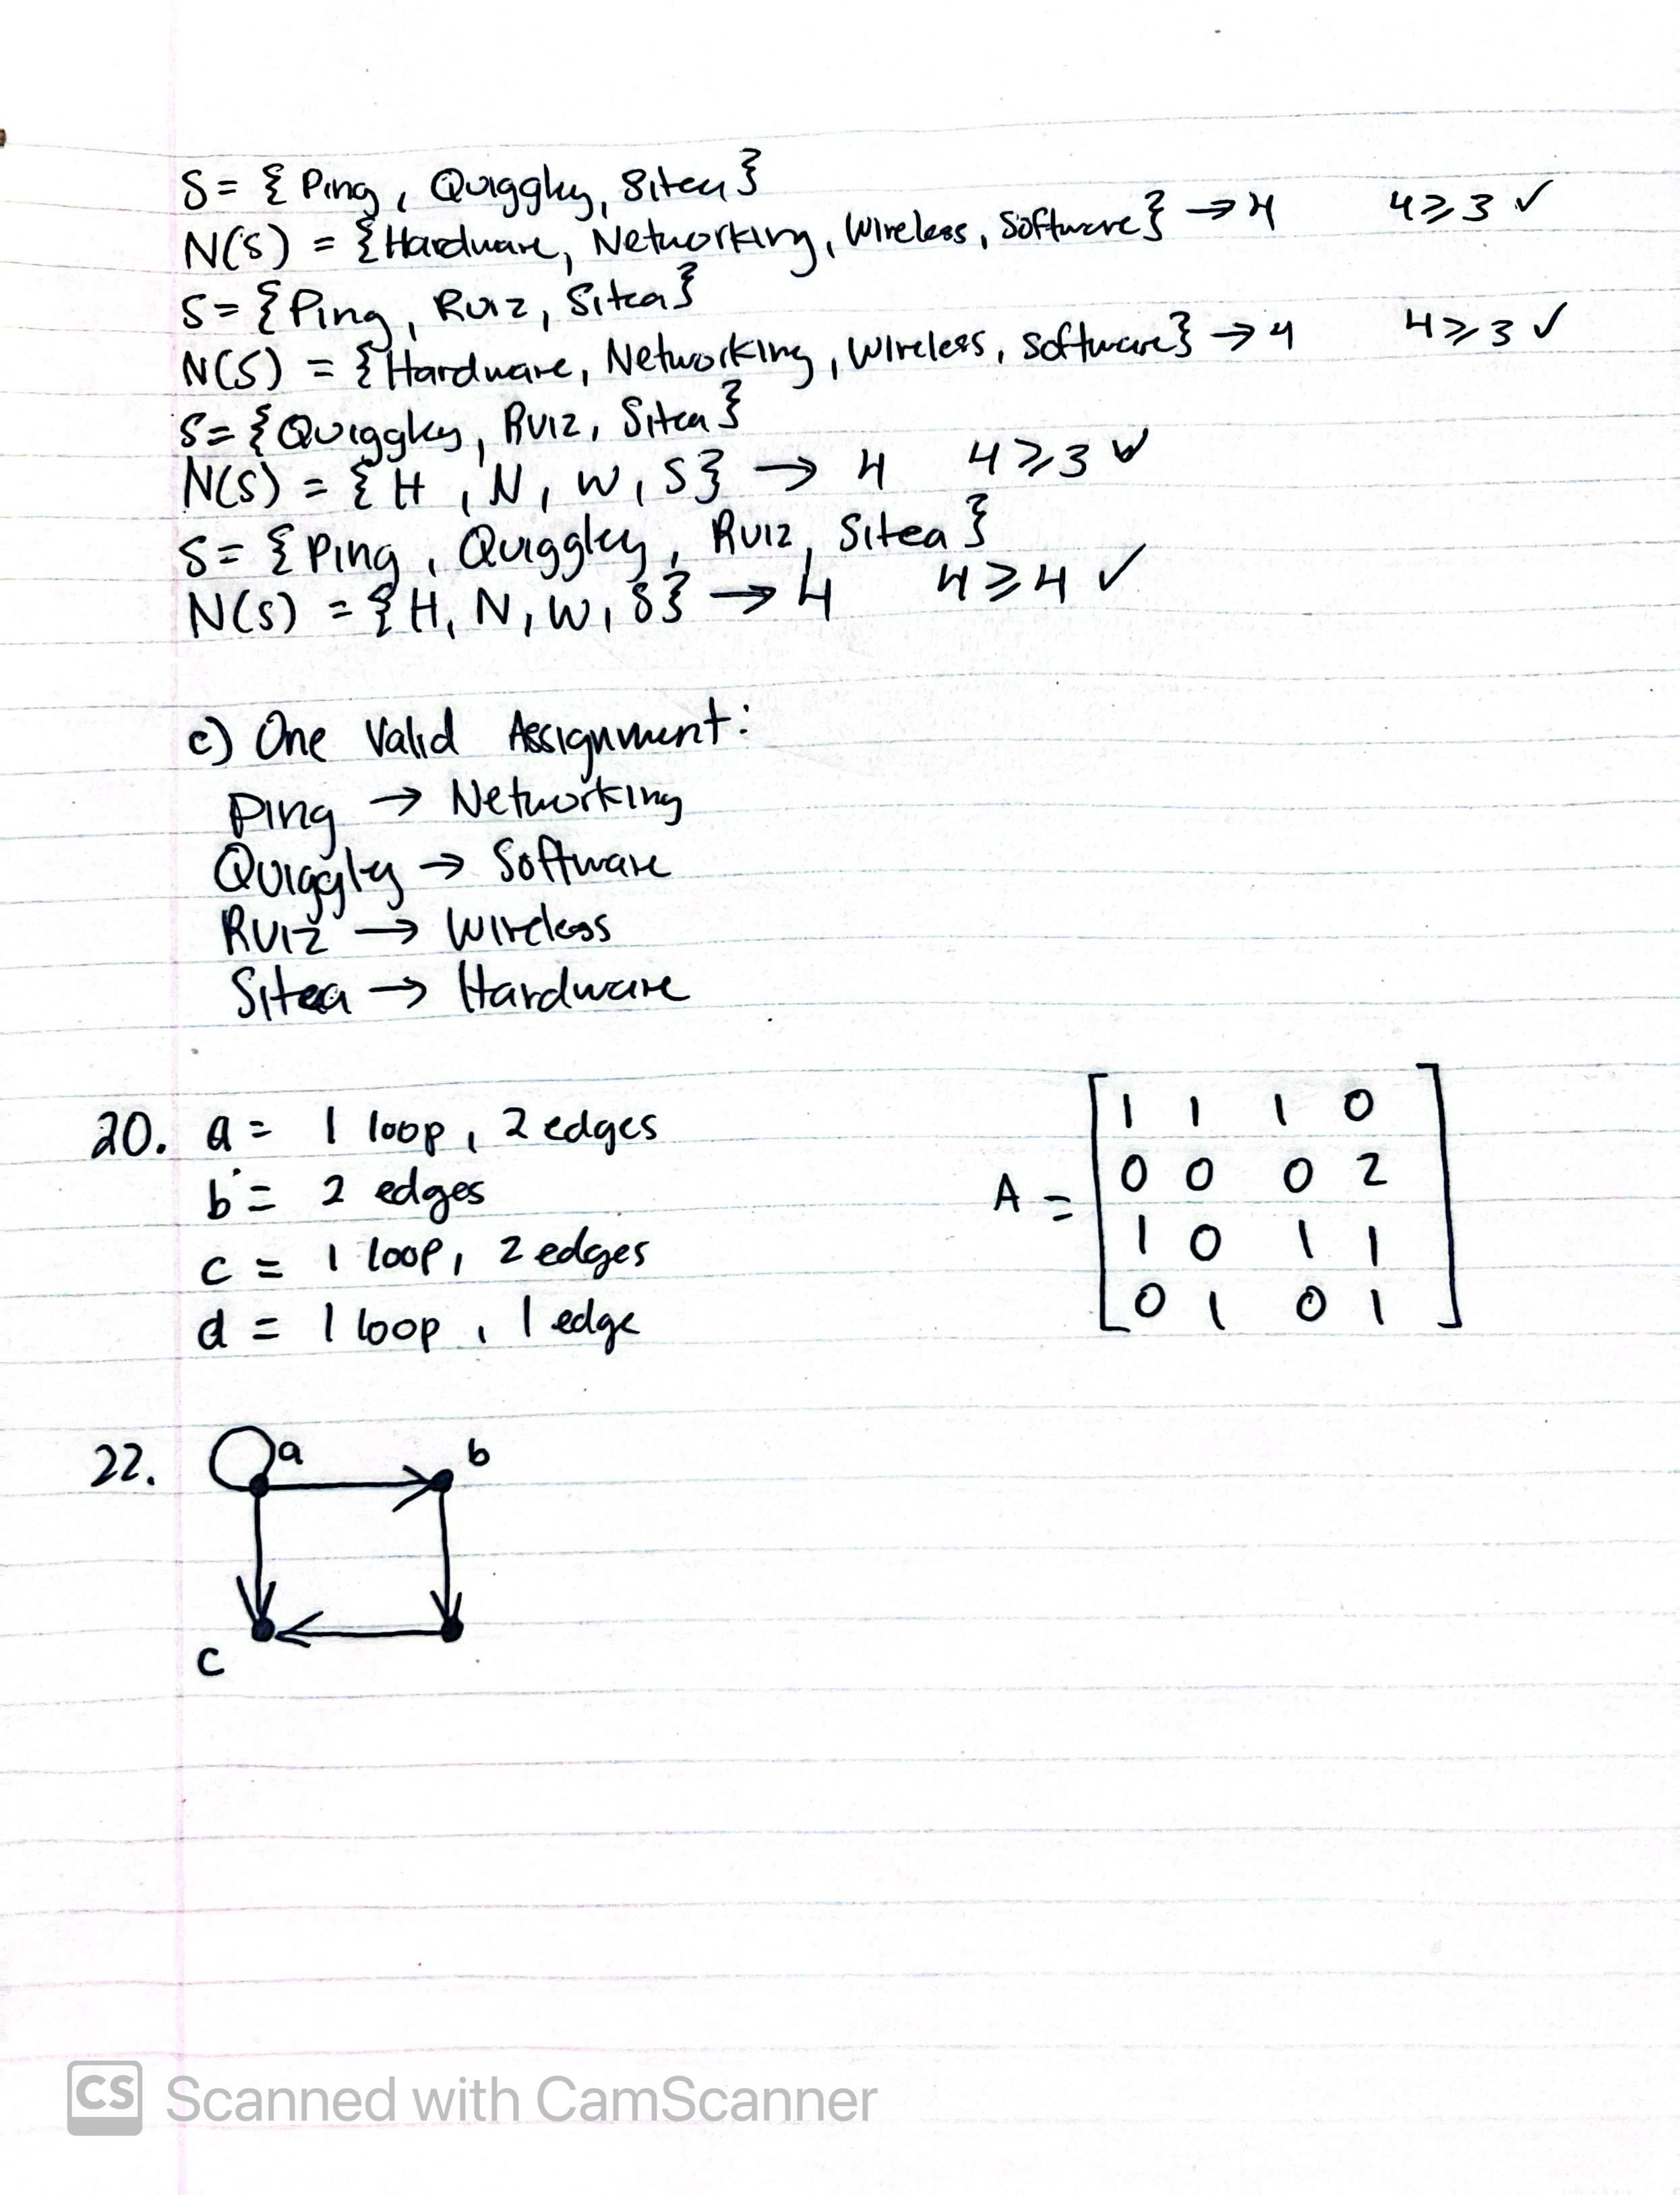 S = { Ping, Quiggley, Sitea }
N(S) = { Hardware, Networking, Wireless, Software } → 4 4 ≥ 3 ✓
S = { Ping, Ruiz, Sitea }
N(S) = { Hardware, Networking, Wireless, Software } → 4 4 ≥ 3 ✓
S = { Quiggley, Ruiz, Sitea }
N(S) = { H, N, W, S } → 4 4 ≥ 3 ✓
S = { Ping, Quiggley, Ruiz, Sitea }
N(S) = { H, N, W, S } → 4 4 ≥ 4 ✓
c) One Valid Assignment:
Ping → Networking
Quiggley → Software
Ruiz → Wireless
Sitea → Hardware
20. a = 1 loop, 2 edges
b = 2 edges
c = 1 loop, 2 edges
d = 1 loop, 1 edge
A =
1 1 1 0
0 0 0 2
1 0 1 1
0 1 0 1
22. a b
c
CS Scanned with CamScanner